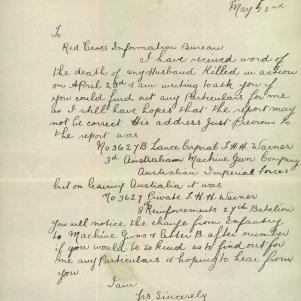 May 22nd
To
Red Cross Information Bureau
I have received word of
the death of my Husband Killed in action
on April 28th I am writing to ask you if
you could find out any Particulars for me
as I still have hopes that the report may
not be correct His address Just Previous to
the report was
No 3627B Lance Corporal T. H. H. Warner
3rd Australian Machine Gun Company
Australian Imperial Forces
but on leaving Australia it was
No 3627 Private T. H. H. Warner
8 Reinforcements 27th Batalion
You will notice the change from Infantry
to Machine Guns & letter B. after number
if you would be so kind as to find out for
me any Particulars & hoping to hear from
you
I am
Yrs Sincerely